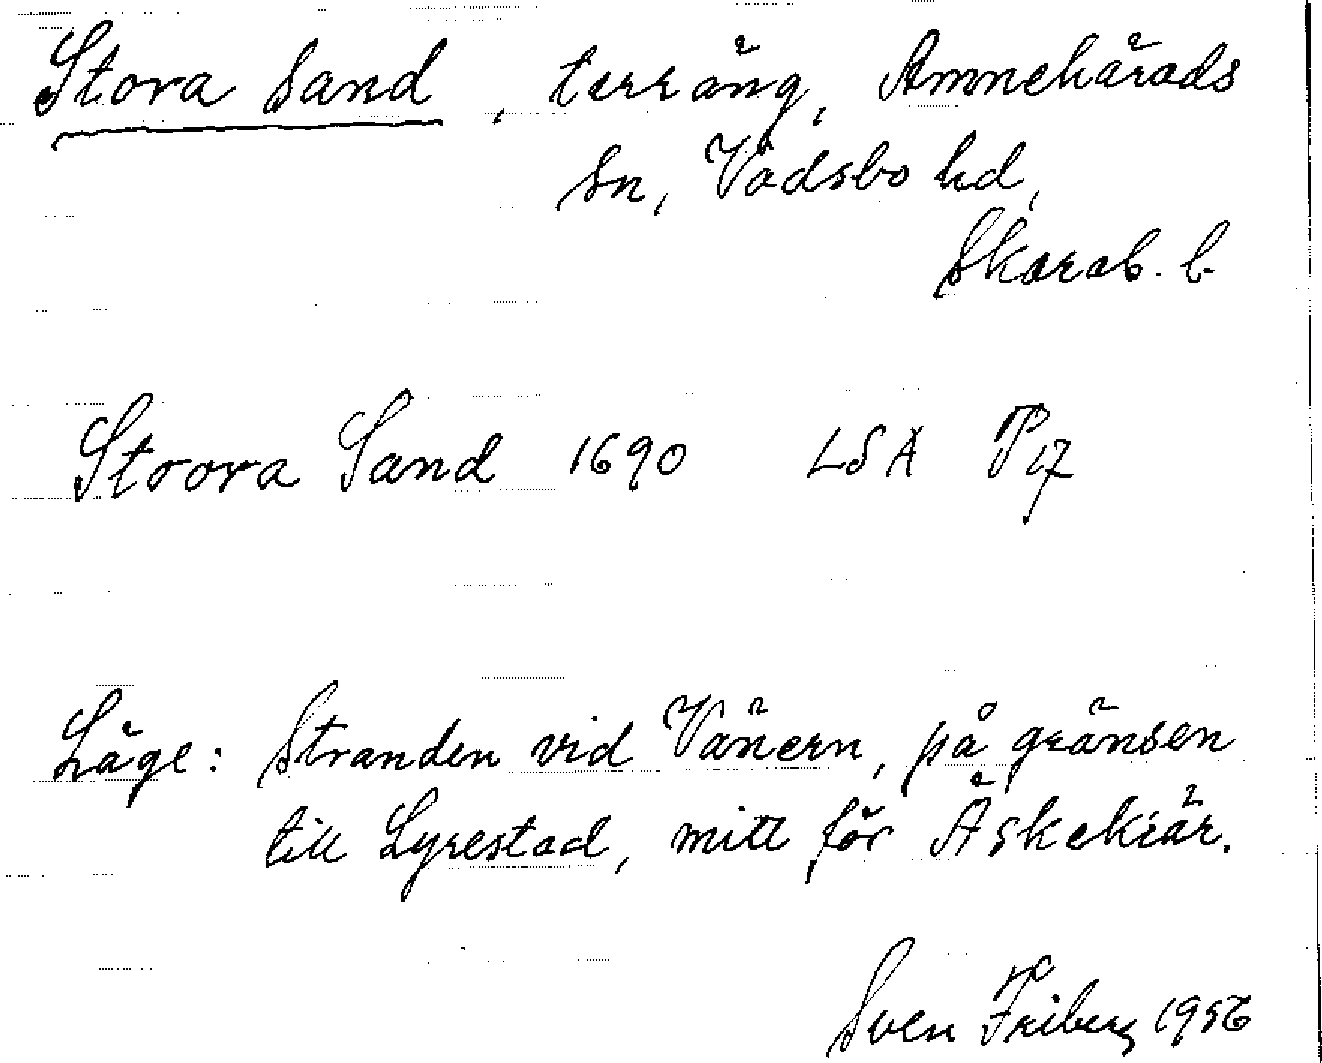 Stora Sand, terräng, Amnehärads
Sn, Vadsbo hd,
Skarab. l.
Stoora Sand 1690 LSA P 17
Läge: Stranden vid Vänern, på gränsen
till Lyrestad, mitt för Äskekiär.
Sven Friberg 1956